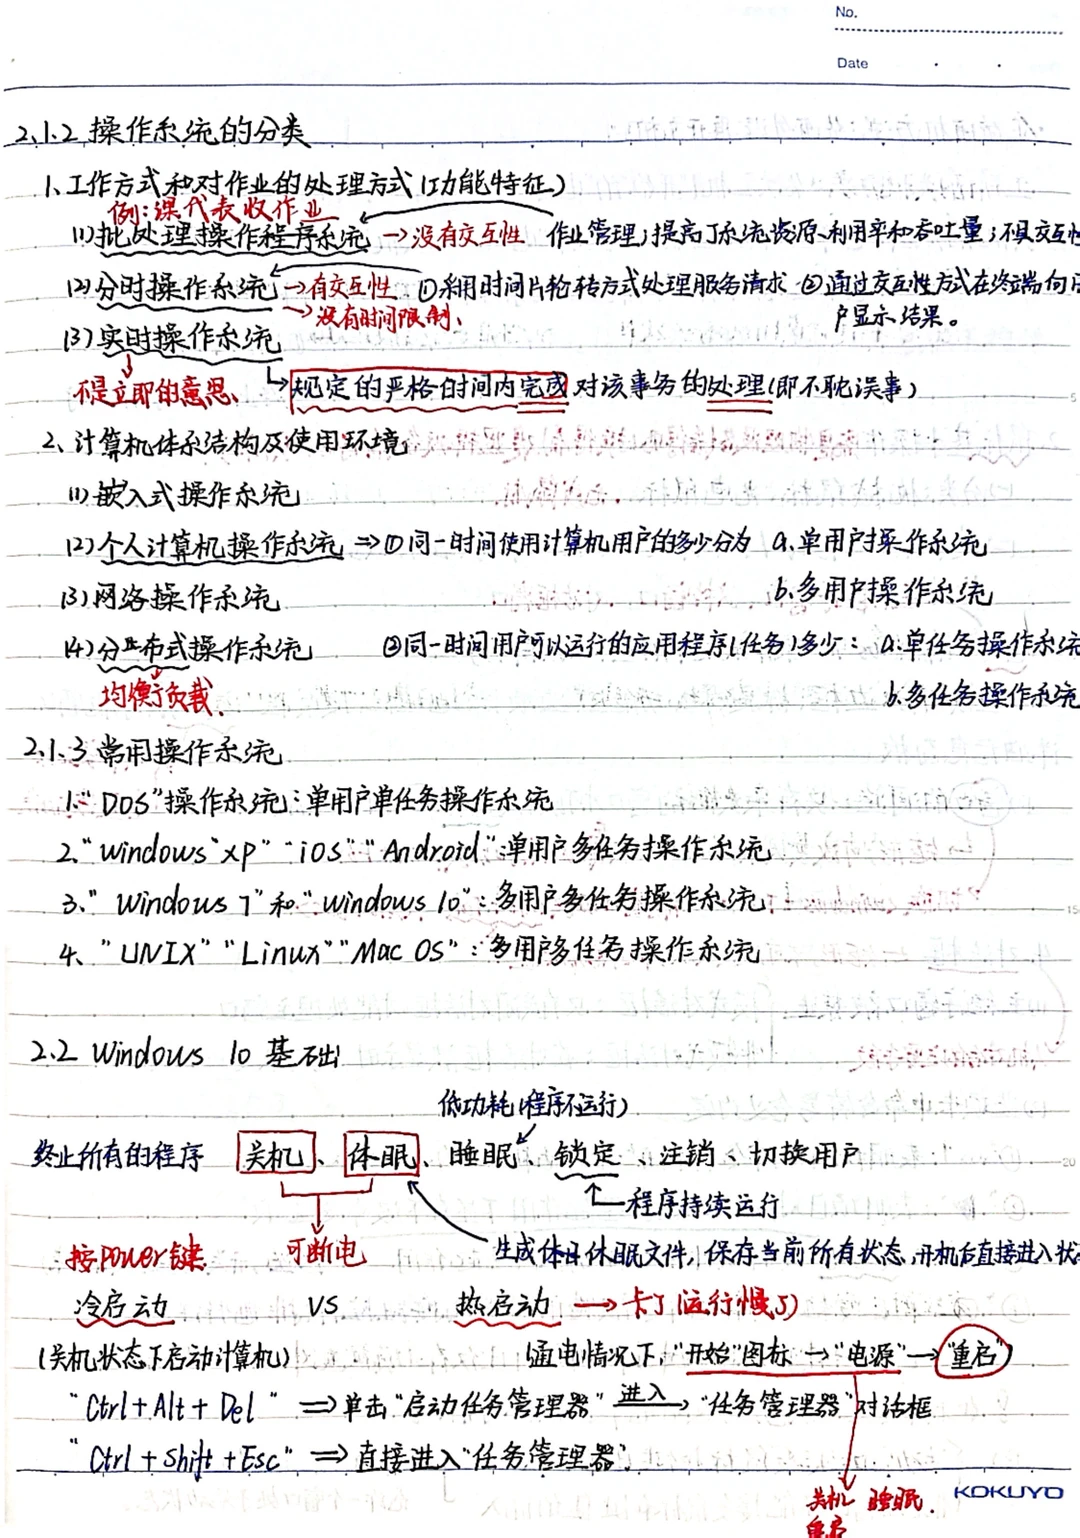 No.
Date
2.1.2 操作系统的分类
1、工作方式和对作业的处理方式(功能特征)
例:课代表收作业
(1)批处理操作程序系统 →没有交互性 作业管理;提高了系统资源利用率和吞吐量;不具交互性
(2)分时操作系统 →有交互性 ①采用时间片轮转方式处理服务请求 ②通过交互性方式在终端向用
→没有时间限制、 户显示结果。
(3)实时操作系统
不是立即的意思、 规定的严格的时间内完成对该事务的处理(即不耽误事)
2、计算机体系结构及使用环境
(1)嵌入式操作系统
(2)个人计算机操作系统 ⇒①同一时间使用计算机用户的多少分为 a.单用户操作系统
(3)网络操作系统 b.多用户操作系统
(4)分布式操作系统 ②同一时间用户可以运行的应用程序(任务)多少: a.单任务操作系统
均衡了负载、 b.多任务操作系统
2.1.3 常用操作系统
1."DOS"操作系统:单用户单任务操作系统
2."windows xp" "iOS" "Android":单用户多任务操作系统
3." Windows 7" 和 "windows 10":多用户多任务操作系统
4、"UNIX" "Linux" "Mac OS":多用户多任务操作系统
2.2 Windows 10 基础
低功耗(程序不运行)
终止所有的程序 关机、休眠、睡眠 锁定、注销、切换用户
程序持续运行
按Power键 可断电 生成休眠文件,保存当前所有状态,开机后直接进入状
冷启动 VS 热启动 →卡了(运行慢了)
(关机状态下启动计算机) (通电情况下,"开始"图标→"电源"→"重启")
"Ctrl+Alt+Del" ⇒单击"启动任务管理器" 进入→ "任务管理器"对话框
"Ctrl+Shift+Esc" ⇒直接进入"任务管理器"
关机 睡眠.
重启
KOKUYO